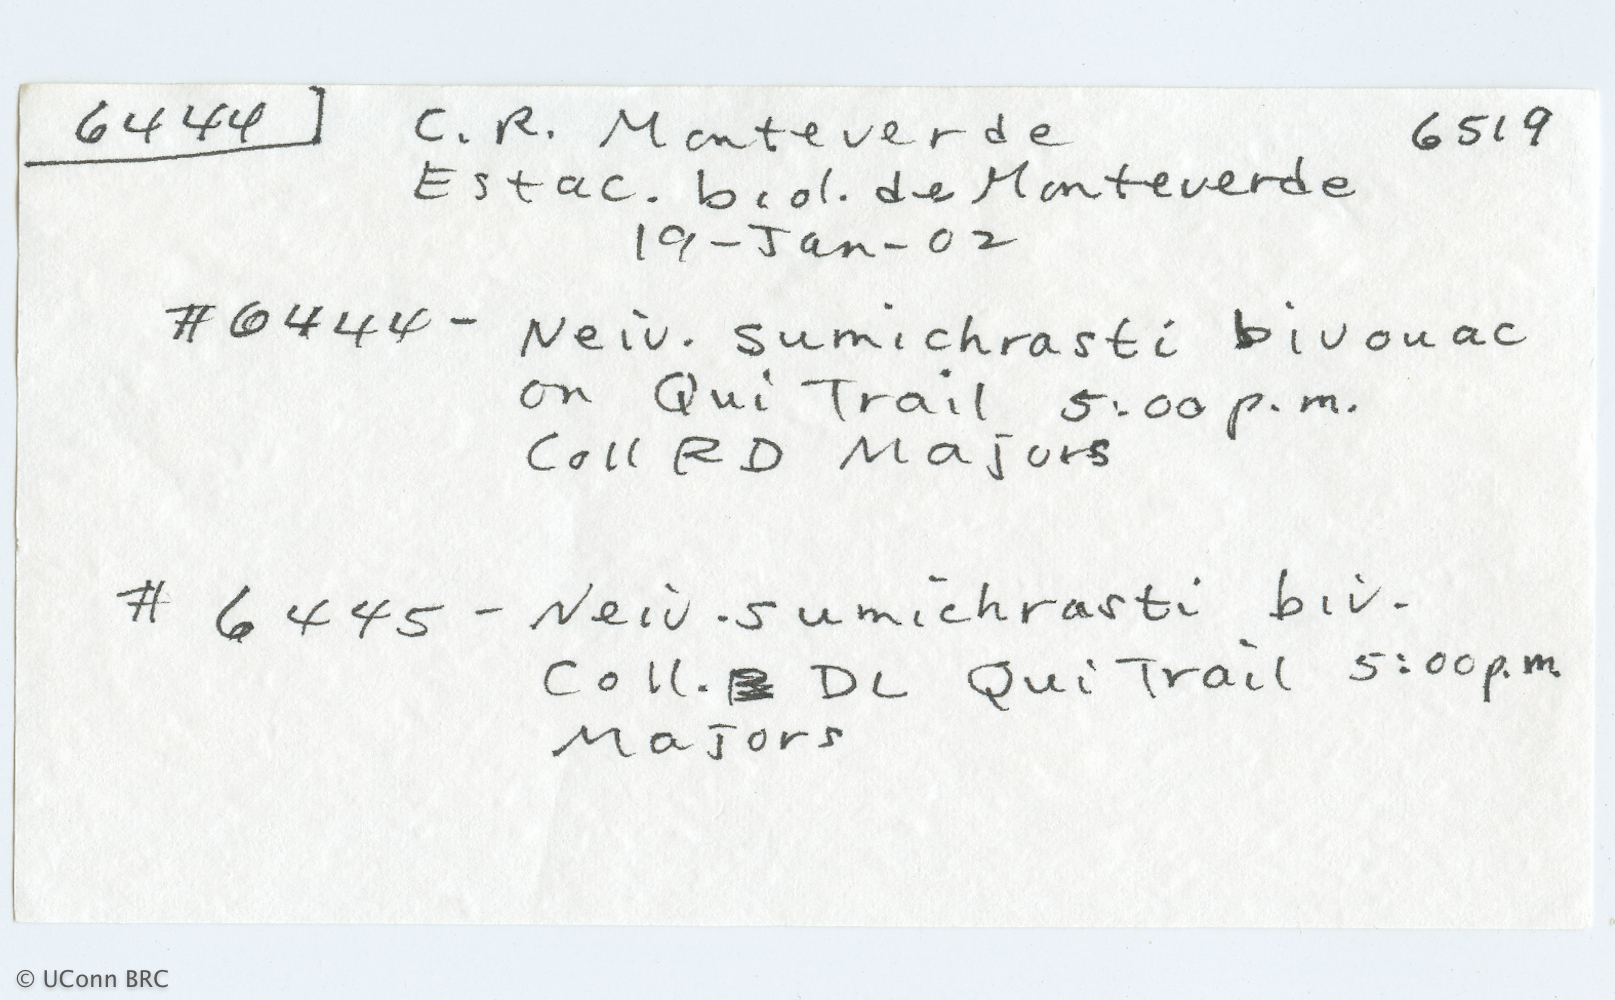 6444 C. R. Monteverde 6519
Estac. biol. de Monteverde
19-Jan-02
#6444 - Neiv. sumichrasti bivouac
on Qui Trail 5:00 p.m.
Coll RD Majors
# 6445 - Neiv. sumichrasti biv.
Coll. DL Qui Trail 5:00 p.m.
Majors
© UConn BRC